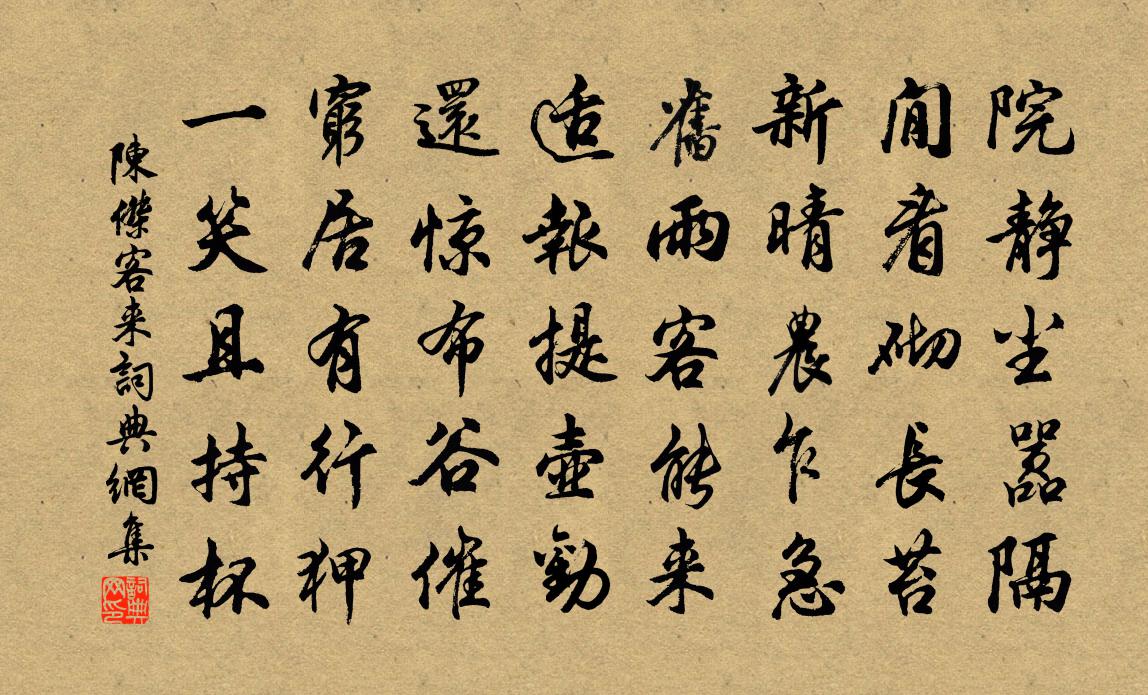 院静尘嚣隔
閒看砌長苔
新晴農乍急
舊雨客能来
适報提壺勸
還惊布谷催
窮居有行狎
一笑且持杯
陳傑客来詞典網集
詞典网印